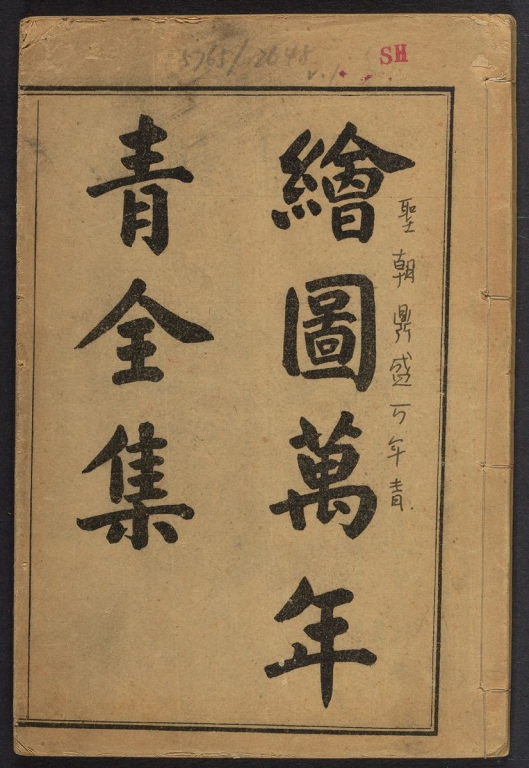 5765/2648
v.1
SH
繪圖萬年
聖朝鼎盛万年青
青全集